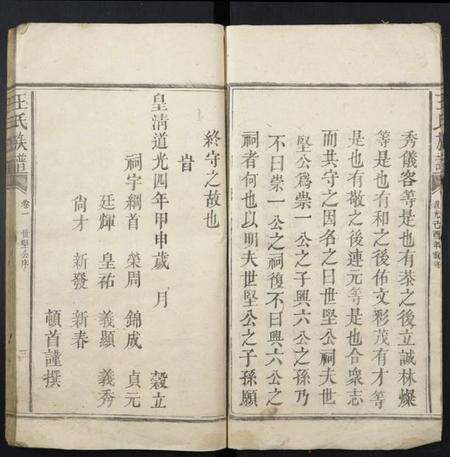 王氏族譜
秀儀容等是也有茶之後立誠林燦
等是也有和之後佑文彩茂有才等
是也有敬之後連元等是也合衆志
而共守之因名之曰世堅公祠夫世
堅公爲崇一公之子興六公之孫乃
不曰崇一公之祠復不曰興六公之
祠者何也以明夫世堅公之子孫願
終守之故也
旹
皇清道光四年甲申歲 月 穀立
祠宇綱首 榮周 錦成 貞元
廷輝 皇祐 義顯 義秀
尙才 新發 新春
頓首謹撰
王氏族譜
卷一 世堅公序
三